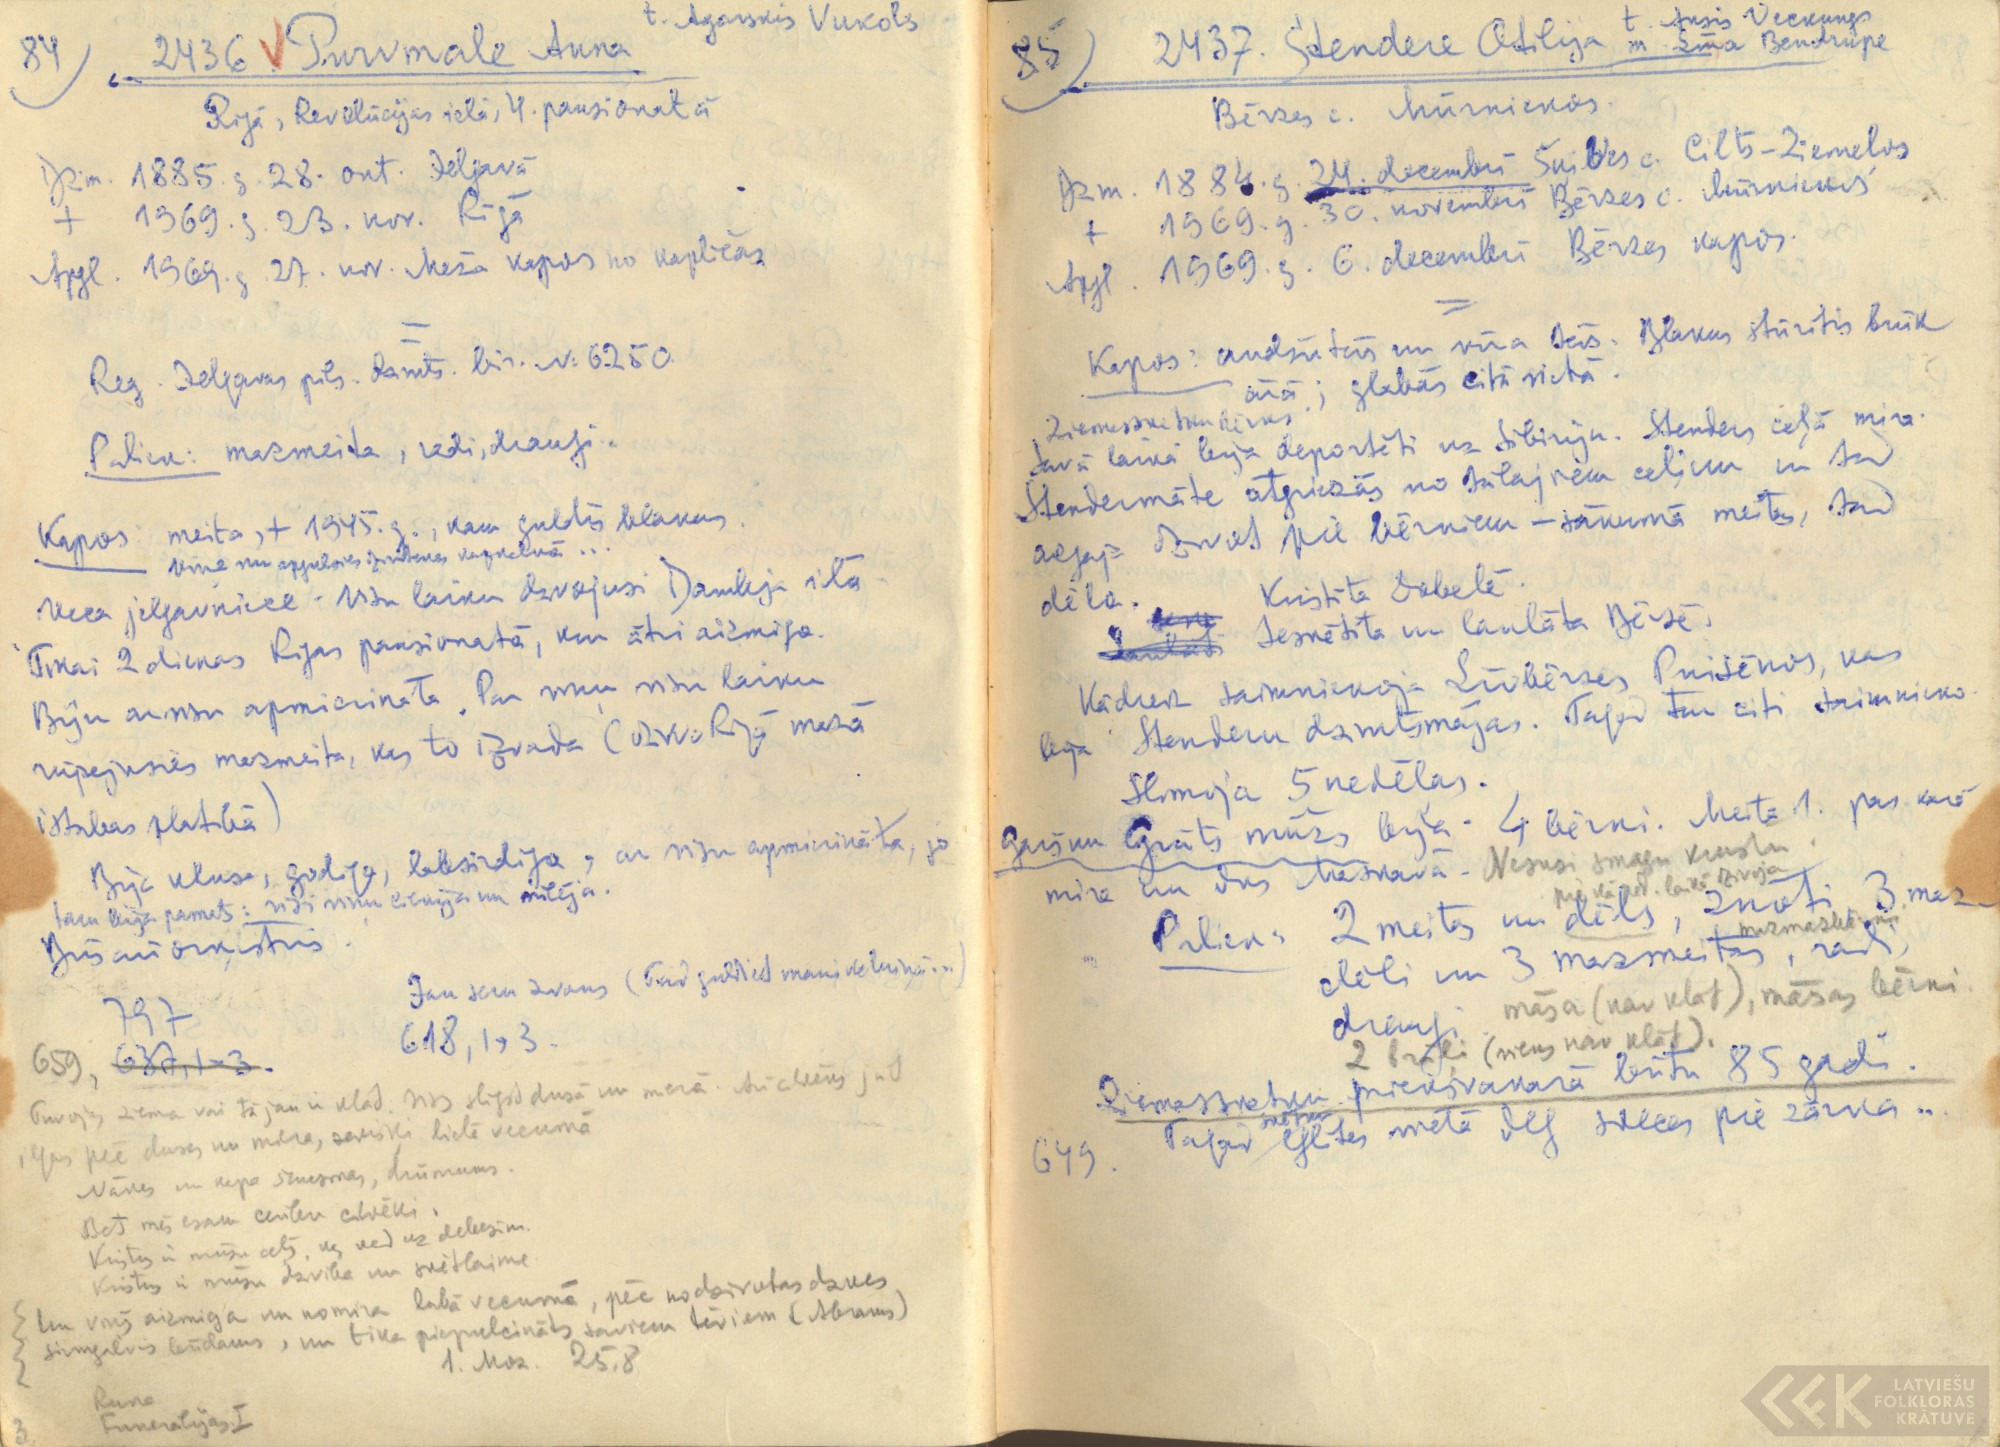 84) 2436 V Purvmale Anna t. Agarskis Vukols
Rīgā, Revolūcijas ielā, 4. pansionatā
Dzim. 1885. g. 28. okt. Jelgavā
+ 1969. g. 23. nov. Rīgā
Apgl. 1969. g. 27. nov. Meža kapos no kapličas
=
Reg. Jelgavas pils. dzimts. bir. N: 6250
Paliek: mazmeita, radi, draugi.
Kapos: meita, + 1945. g., kam guldīs blakus.
Veca jelgavniece. Visu laiku dzvojusi Dambja ielā
Tikai 2 dienas Rīgas pansionatā, kur ātri aizmiga.
Bija ar visu apmierināta. Par viņu visu laiku
rūpejusies mazmeita, kas to izvada (dzīvo Rīgā mazā
istabas platībā)
Bija klusa, godīga, labsirdīga, ar visu apmierināta, jo
tam bija pamats: visi viņu cienija un mīlēja.
Būs arī orķestris.
797 Jau sen zvans (Tad guldiet mani velniņā...)
659, 637, 1-3. 618, 1, 3.
Tuvojas ziema vai tā jau ir klāt. Viss slīgst dusā un mierā. Arī cilvēks jūt
ilgas pēc dusas un miera, sevišķi lielā vecumā
Nāves un kapa skumjas, drūmums.
Bet mēs esam ceribu cilvēki.
Kristus ir mūsu ceļš, kas ved uz debesīm.
Kristus ir mūsu dzīvība un svētlaime
Un viņš aizmiga un nomira labā vecumā, pēc nodzīvotas dzīves
sirmgalvis būdams, un tika piepulcināts saviem tēviem (Abrams)
1. Moz. 25,8
Runa
Funeralijas I
3
85) 2437. Stendere Otilija t. Ansis Veckungs
m. Ema Bendrupe
Bērzes c. Mūrniekos.
Dzm. 1884. g. 24. decembrī Šķibes c. Cilts-Ziemeļos
+ 1969. g. 30. novembrī Bērzes c. Mūrniekos
Apgl. 1969. g. 6. decembrī Bērzes kapos.
=
Kapos: audžutēvs un vīra tēvs. Blakus stūrītis brūk
ārā; glabās citā vietā.
Ziemassvētku bērns.
Savā laikā bija deportēti uz Sibiriju. Stenders ceļā mira.
Stendermāte atgriezās no tālajiem ceļiem un tad
aizgāja dzīvot pie bērniem - sākumā meitas, tad
dēla. Kristīta Dobelē.
Iesvētīta un laulāta Bērzē.
Kādreiz saimniekoja Līvbērzes Puišēnos, kas
bija Stenderu dzimtsmājas. Tagad tur citi saimnieko.
Slimoja 5 nedēļas.
Garšu Grūts mūžs bija. 4 bērni. Meita 1. pas. karā
mira Maskavā. Nesusi smagu krustu.
pie kā pēd. laikā dzīvoja
Paliek: 2 meitas un dēls, znoti, 3 maz
dēli un 3 mazmeitas, radi,
draugi. māsa (nav klāt), māsas bērni.
2 brāļi (viens nav klāt).
Ziemassvētku priekšvakarā būtu 85 gadi.
svētku
649. Tagad eglītes vietā deg sveces pie zārka ..
LATVIEŠU
FOLKLORAS
KRĀTUVE